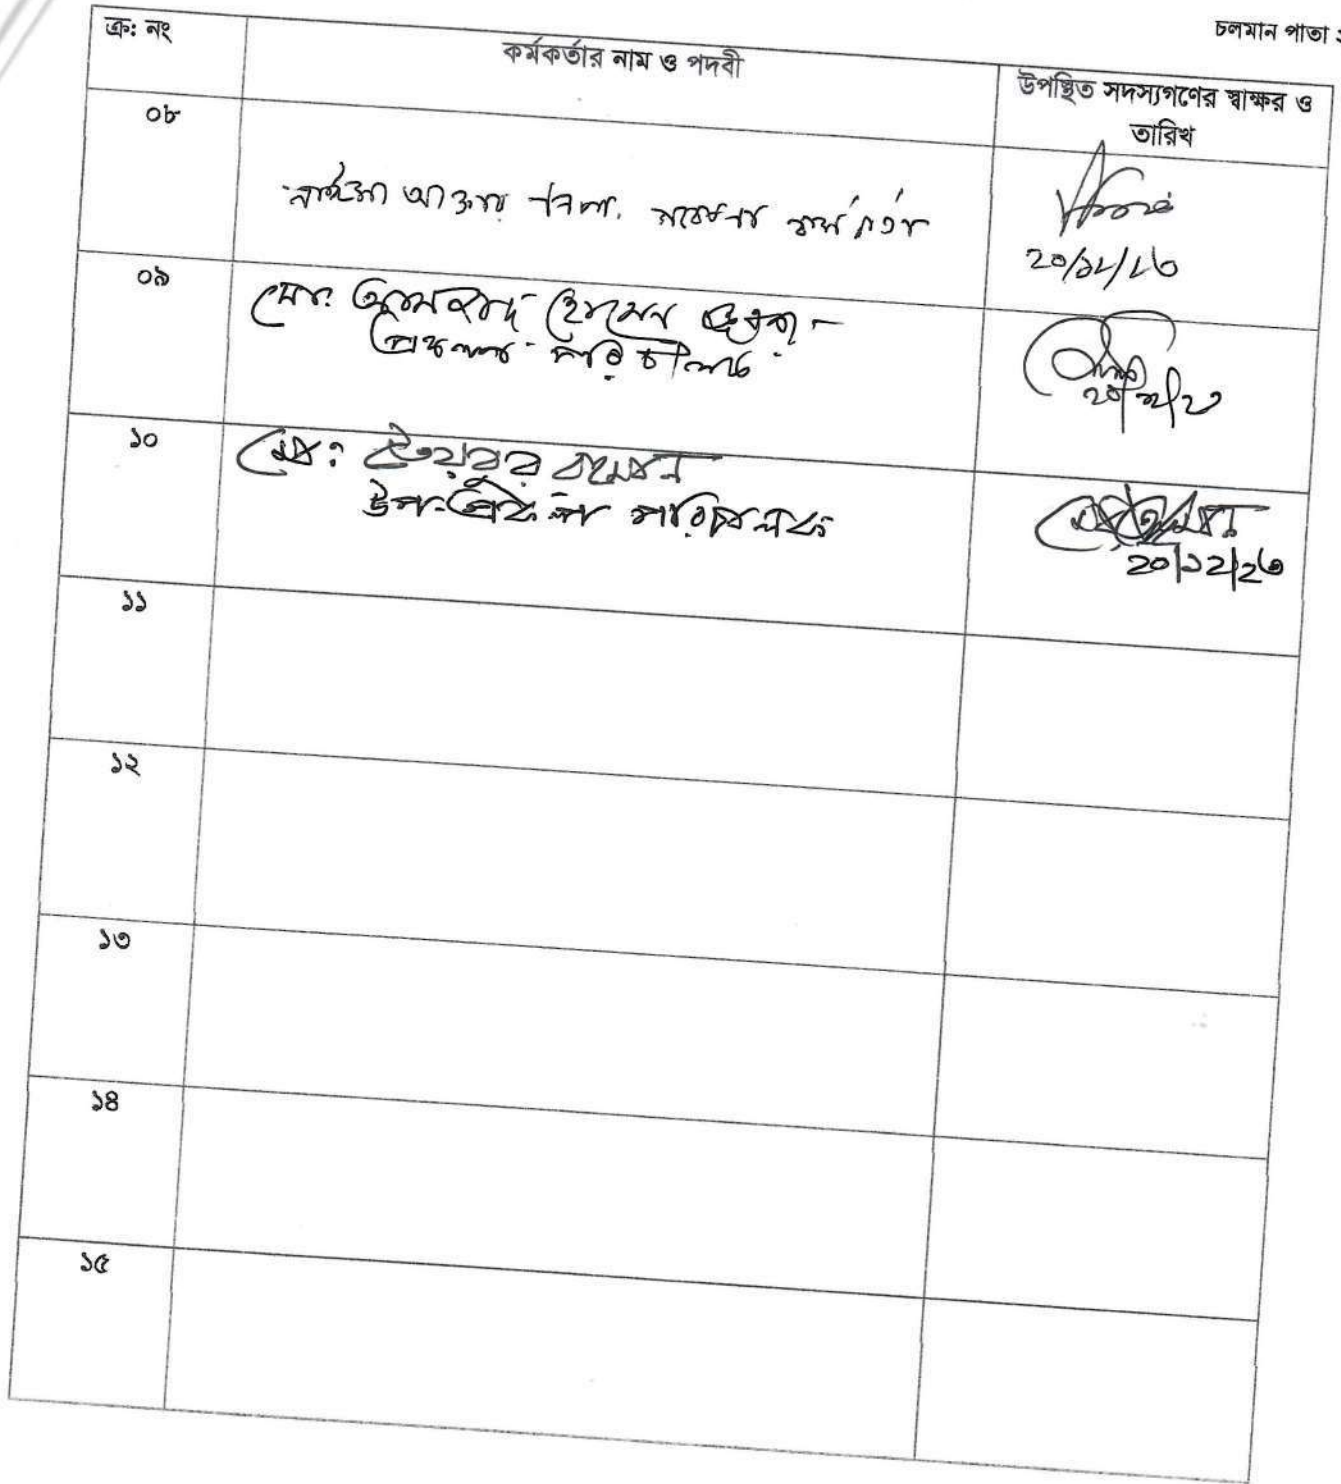 চলমান পাতা
ক্র: নং
কর্মকর্তার নাম ও পদবী
উপস্থিত সদস্যগণের স্বাক্ষর ও
তারিখ
০৮
নাইমা আক্তার
২০/১২/২৩
০৯
মো: হোসেন
প্রকল্প পরিচালক
২০/১২/২৩
১০
মো: তৈয়বুর রহমান
উপ-প্রকল্প পরিচালক
২০/১২/২৩
১১
১২
১৩
১৪
১৫